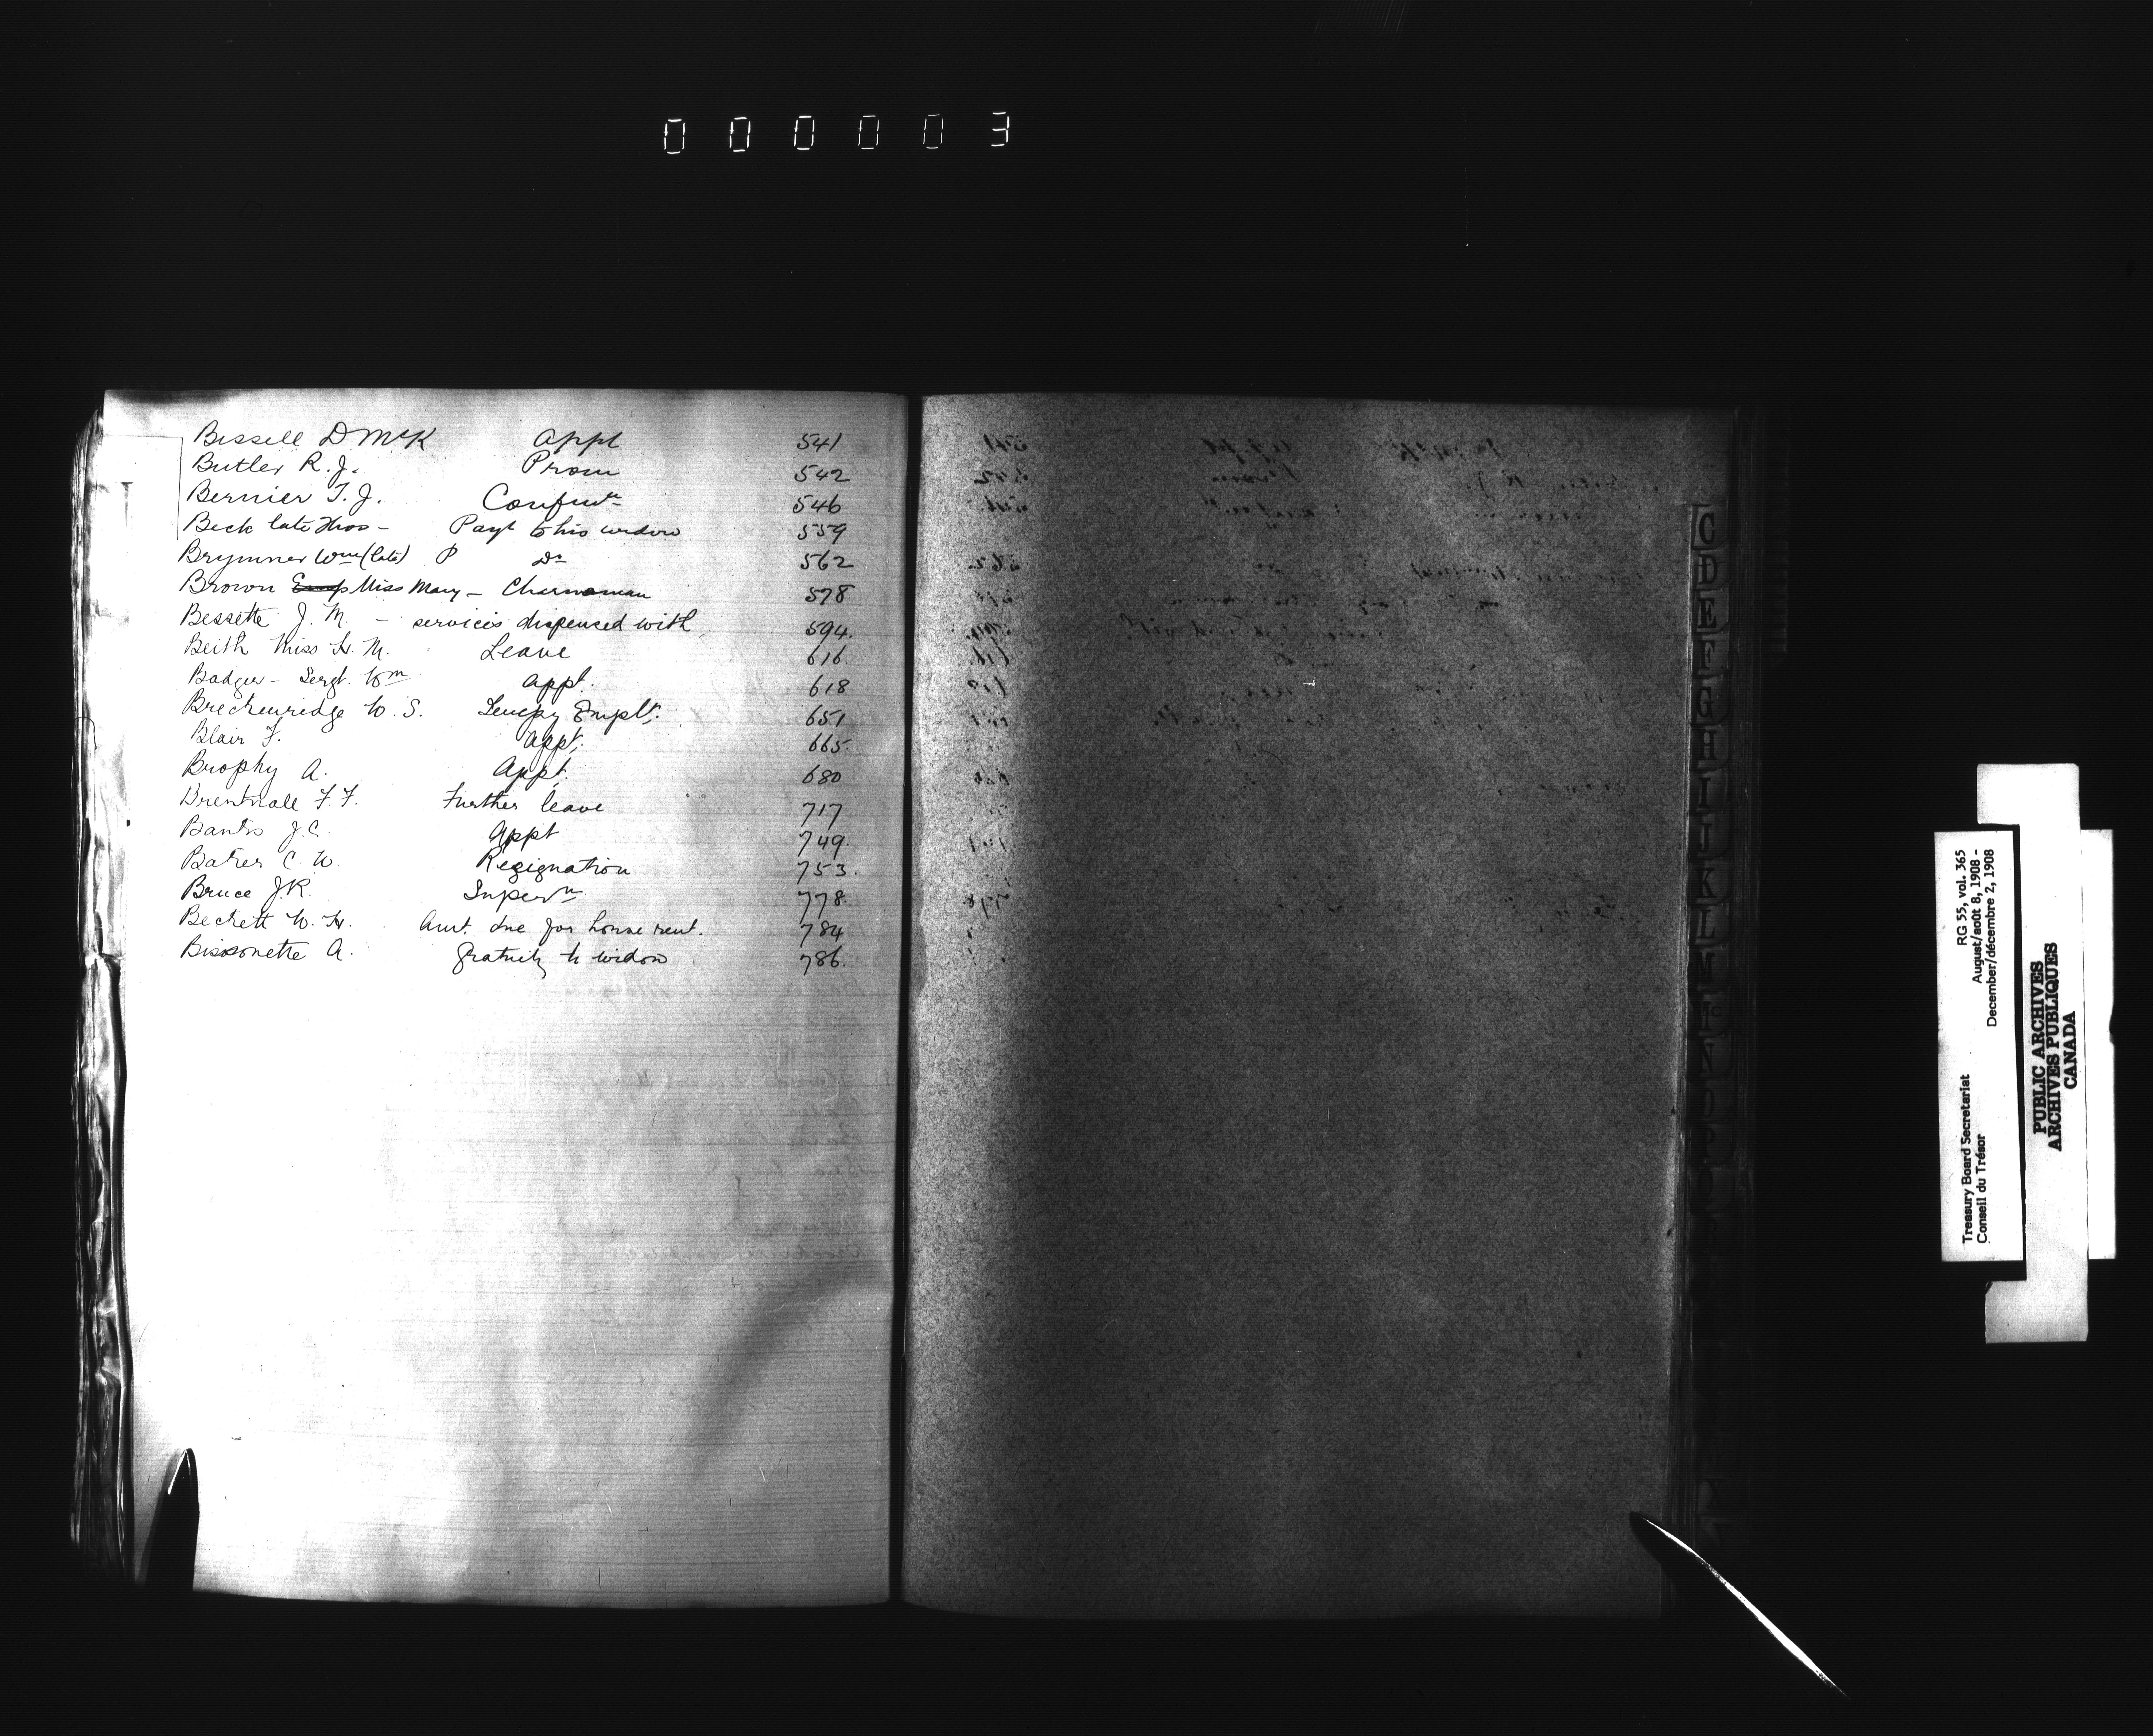 000003
Bissell D McK appt 541
Butler R. J. Prom 542
Bernier T. J. Confmtn 546
Beck late Thos - Payt to his widow 559
Brymner Wm (late) P Do 562
Brown Miss Mary - Charwoman 578
Bessette J. M. - services dispensed with 594.
Beith Miss H. M. Leave 616.
Badger - Sergt. Wm appt. 618
Breckenridge W. S. Tempy Emplt. 651
Blair F. Appt. 665.
Brophy A. Appt. 680
Brentnall F. F. Further leave 717
Banks J. C. Appt 749.
Baker C. W. Resignation 753.
Bruce J. R. 778.
Beckett W. H. Amt. due for house rent. 784
Bissonette A. Gratuity to widow 786.
C
D
E
F
G
H
I
J
K
L
M
Mc
N
O
P
RG 55, vol. 365
August/août 8, 1908 -
December/décembre 2, 1908
Treasury Board Secretariat
Conseil du Trésor
PUBLIC ARCHIVES
ARCHIVES PUBLIQUES
CANADA